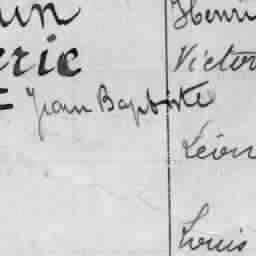 un
Henri
erie
Victor
= Jean Baptiste
Léon
Louis